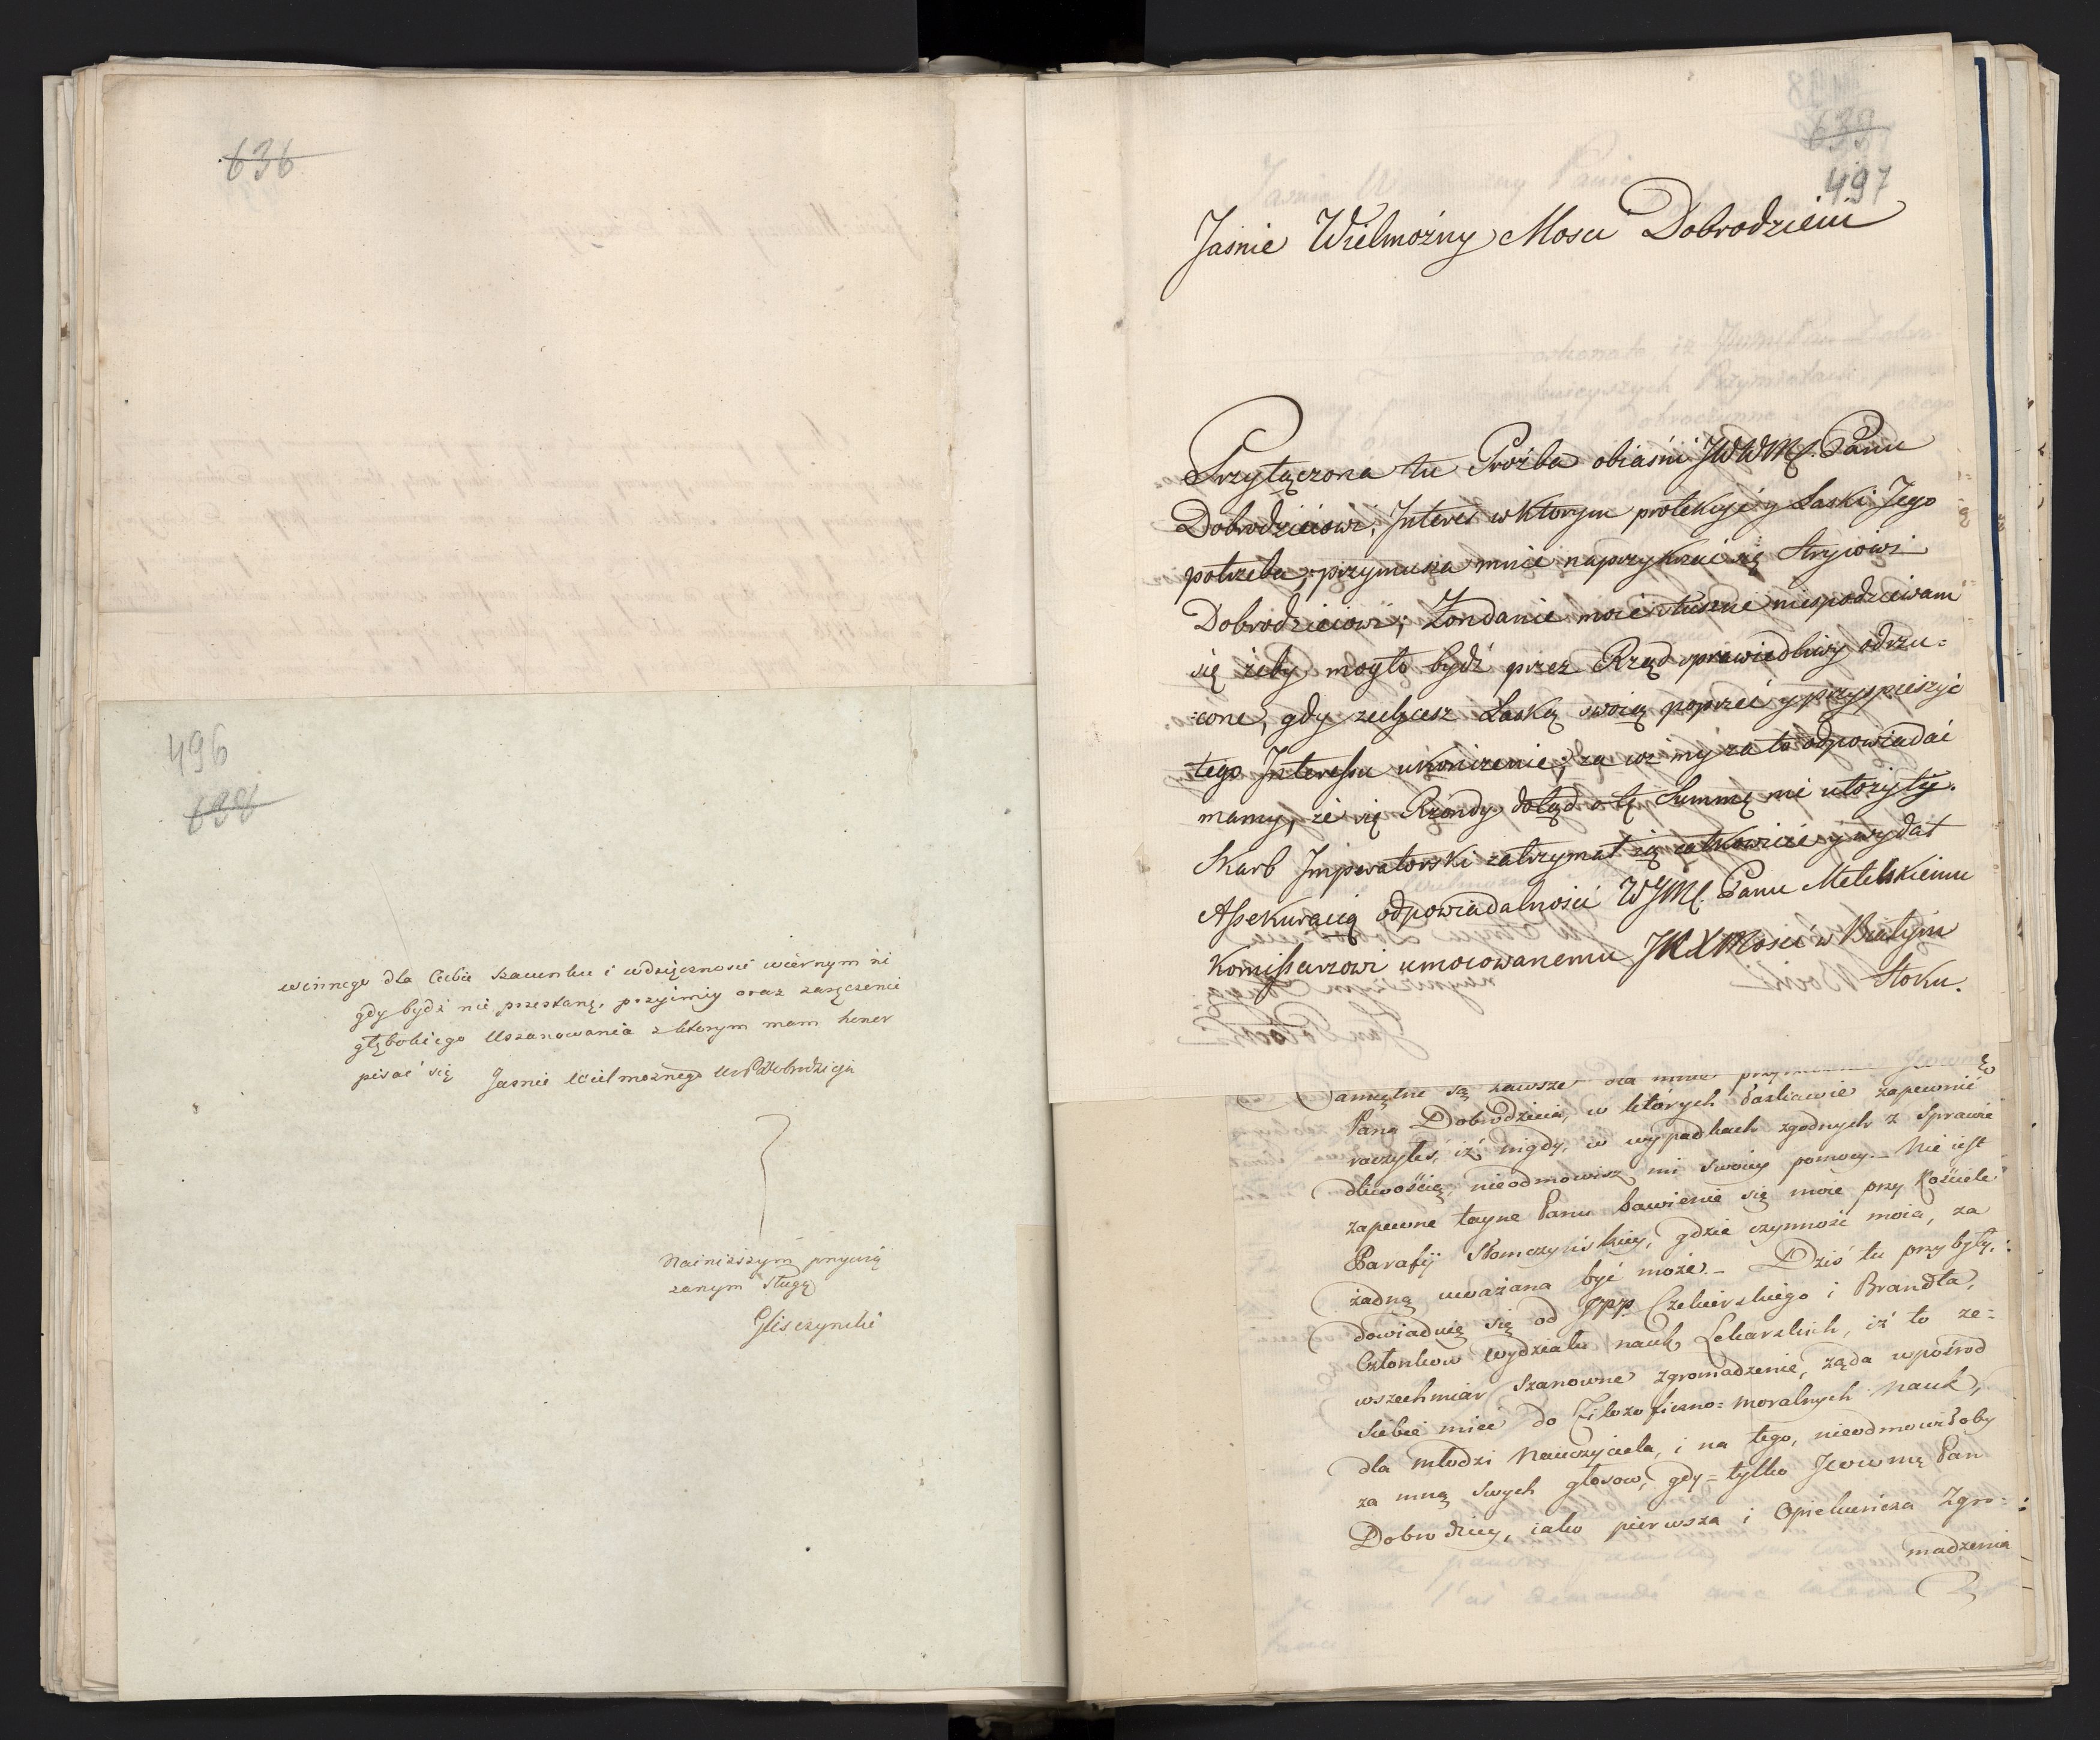 636
496
638
winnego dla Ciebie szacunku i wdzięcznosci wiernym ni
gdy bydź nie przestanę, przyimiy oraz zaręczenie
głębokiego Uszanowania z ktorym mam honor
pisać się Jasnie Wielmoznego WPD Dobrodzieja
Nainizszym przywią
zanym Sługą
Gliszczynski
639
497
Jasnie Wielmożny Mosci Dobrodzieiu
Przyłączona tu Prożba obiaśni JWWMC. Panu
Dobrodzieiowi, Interes w Ktorym protekcyi y Łaski Jego
potrzeba, przymusza mnie naprzykrzać się Stryiowi
Dobrodzieiowi; Żondanie moie słuszne niespodziewam
się żeby mogło bydź przez Rząd sprawiedliwy odrzu=
=cone, gdy zechcesz Łaską swoią poprzeć y przyspieszyć
tego Interessu ukończenie; za co my za to odpowiadać
mamy, że się Rzondy dotąd o tę Summę nie ułożyły.
Skarb Imperatorski zatrzymał ią całkowicie y wydał
Assekuracią odpowiadalności WJMC. Panu Metelskiemu
Komissarzowi umocowanemu JKXMosci w Białym
Stoku.
Pamiętne są zawsze dla mnie
Pana Dobrodzieia, w których łaskawie zapewnić
raczyłeś, iż nigdy, w wypadkach zgodnych z Sprawie
dliwością, nieodmowisz mi swoiey pomocy. — Nie iest
zapewne tayne Panu bawienie się moie przy Kościele
Parafij Słomczyńskiey, gdzie czynność moia, za
żadną uważana być może. — Dziś tu przybyły,
dowiaduię się od JPP. Czekierskiego i Brandta,
Członkow Wydziału nauk Lekarskich, iż to ze=
wszechmiar szanowne Zgromadzenie, żąda wpośrod
siebie mieć do Filozoficzno=moralnych Nauk,
dla młodzi Nauczyciela, i na tego, nieodmowiłoby
za mną swych głosow, gdy=tylko JWWMę Pan
Dobrodziey, iako pierwsza i Opiekuńcza Zgro=
madzenia